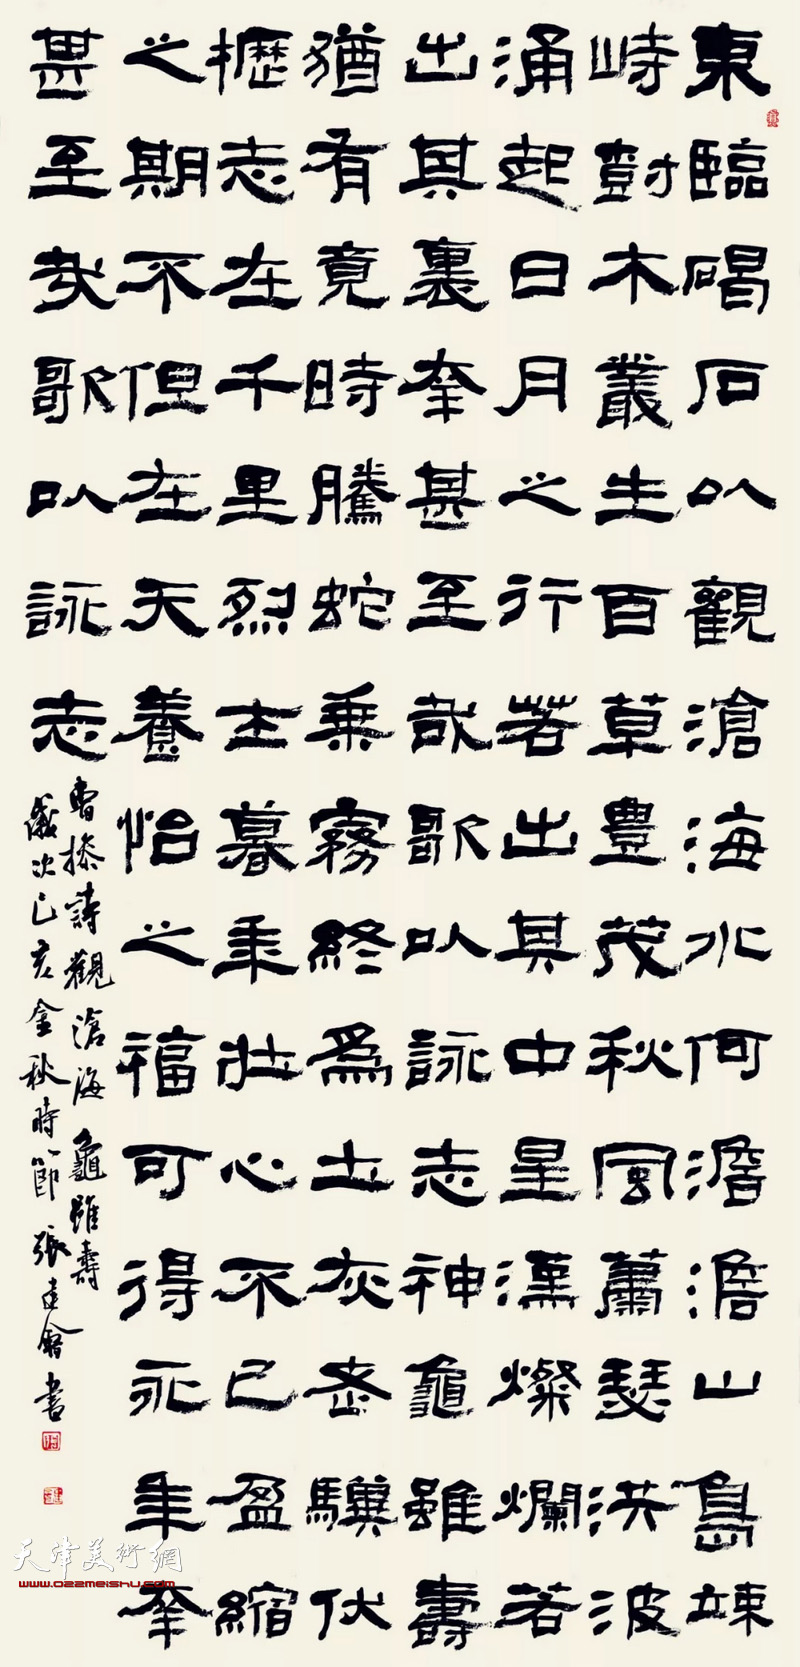 東臨碣石以觀滄海水何澹澹山島竦
峙尌木叢生百草豊茂秋風蕭瑟洪波
涌起日月之行若出其中星漢燦爛若
出其裏幸甚至哉歌以詠志神龜雖壽
猶有竟時騰蛇乘霧終為土灰老驥伏
櫪志在千里烈士暮年壯心不已盈縮
之期不但在天養怡之福可得永年幸
甚至哉歌以詠志
曹操詩觀滄海 龜雖壽
歲次己亥金秋時節張建會書
天津美術網
www.022meishu.com